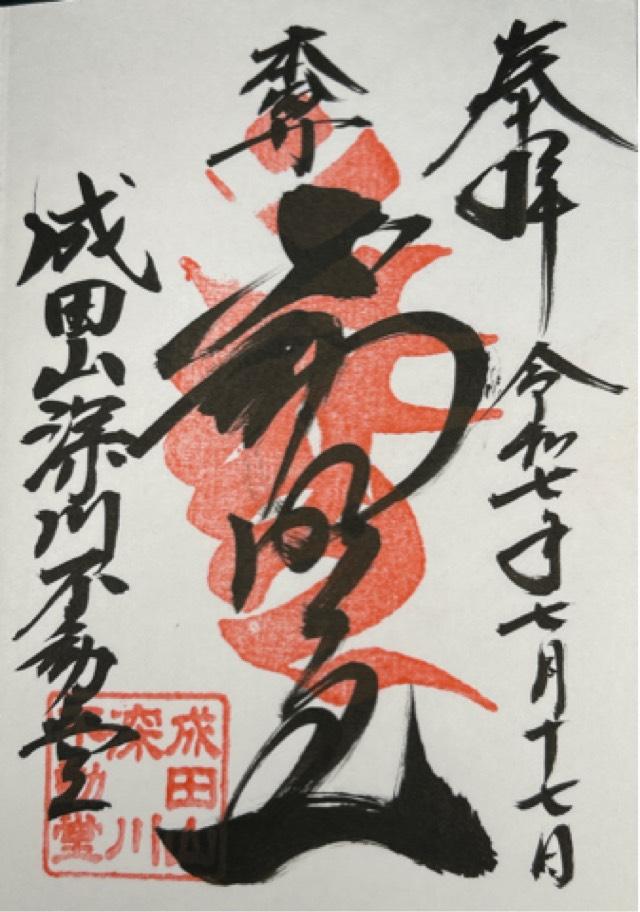 奉拝
令和七年七月十七日
不動明王
成田山深川不動堂
成田山
深川
不動堂